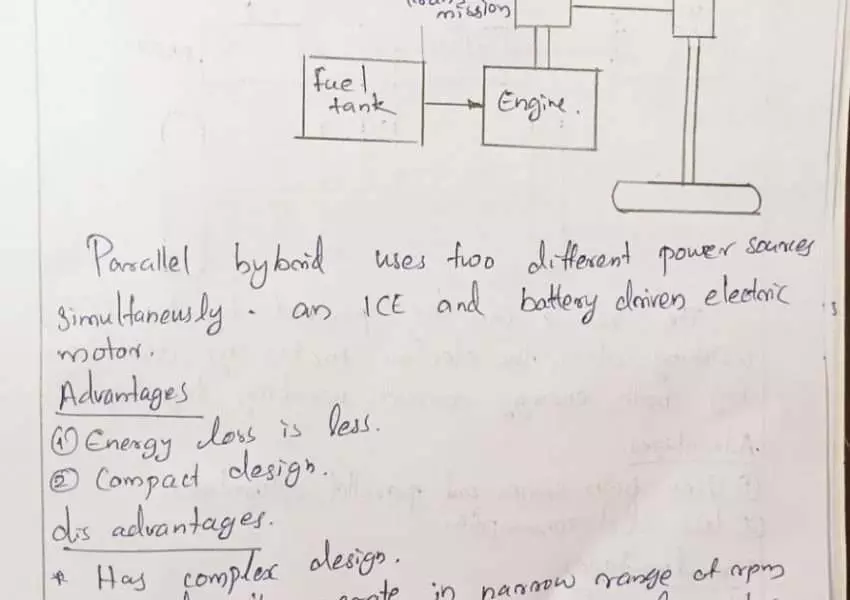 mission
fuel
tank
Engine.
Parallel hybrid uses two different power sources
simultaneusly. an ICE and battery driven electric
motor.
Advantages
① Energy loss is less.
② Compact design.
dis advantages.
* Has complex design.
in narrow range of rpm